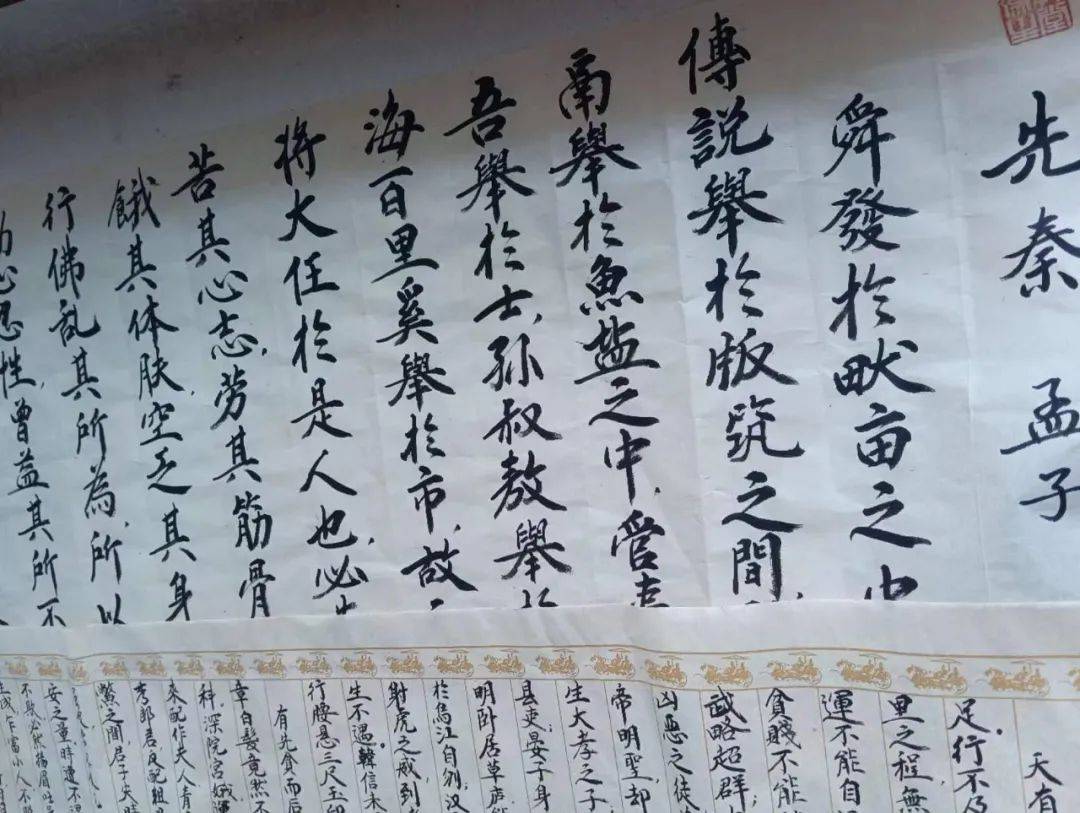 先秦 孟子
舜發於畎亩之中
傅說舉於版筑之間
鬲舉於魚盐之中,管夷
吾舉於士,孫叔敖舉於
海百里奚舉於市,故
将大任於是人也,必先
苦其心志,劳其筋骨
餓其体肤,空乏其身
行佛乱其所為,所以
動心忍性,曾益其所不
天有
足。行不及
里之程,無
運不能自
貧賤不能
武略超群
凶惡之徒
帝明聖,却
生大孝之子
县吏;晏子身
明卧居草庐能
於烏江自刎,汉
射虎之威,到
生不遇。韓信未
行腰悬三尺玉印
有先貧而后
章白髮竟然不
科,深院宫娥運
來配作夫人青
考郎君,反配粗
鱉之間,君子失時
安之量時遭不遇